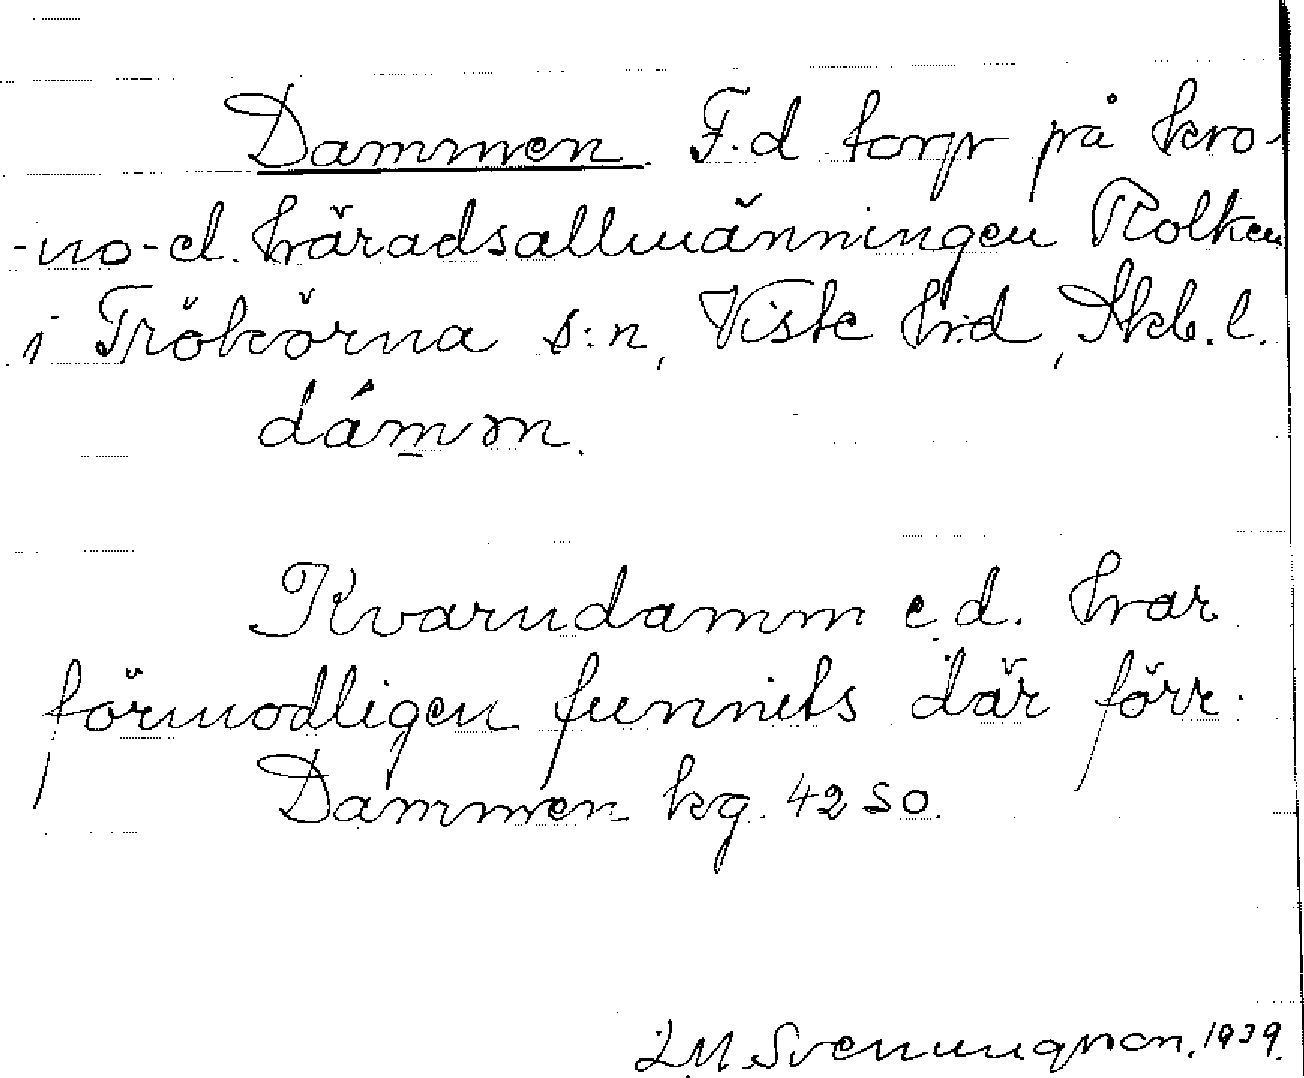 Dammen. F.d torp på kro-
-no- el. häradsallmänningen Kolken
i Trökörna s:n, Viste hrd, Skb. l.
dámm.
Kvarndamm e.d. har
förmodligen funnits där förr.
Dammen kg. 4250.
L M Svenungsson. 1939.